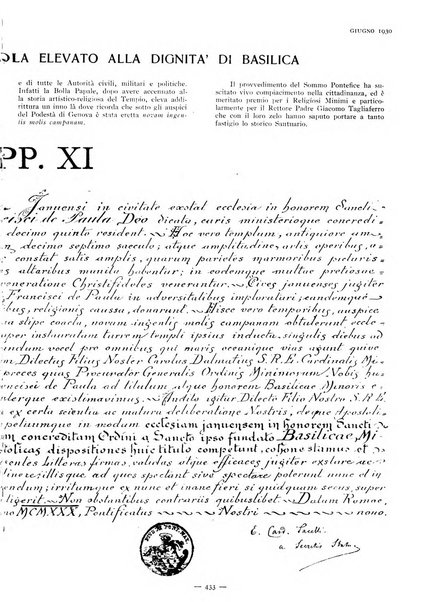 GIUGNO 1930
OLA ELEVATO ALLA DIGNITA' DI BASILICA
e di tutte le Autorità civili, militari e politiche.
Infatti la Bolla Papale, dopo avere accennato al-
la storia artistico-religiosa del Tempio, eleva addi-
rittura un inno là dove ricorda che sotto gli auspici
del Podestà di Genova è stata eretta novam ingen-
tis molis campanam.
Il provvedimento del Sommo Pontefice ha su-
scitato vivo compiacimento nella cittadinanza, ed è
meritato premio per i Religiosi Minimi e particola-
rmente per il Rettore Padre Giacomo Tagliaferro
che con il loro zelo hanno saputo portare a tanto
fastigio lo storico Santuario.
PP. XI
Januensi in civitate exstat ecclesia in honorem Sancti
cisci de Paula Deo dicata, curis ministerioque concredi
decimo quinto resident. Hoc vero templum, antiquiore um
decimo septimo saeculo; atque amplitudine, artis operibus, a
constat satis amplis, quarum parietes marmoribus picturis
es altaribus munita habentur; in eodemque multae pretiosae
veneratione Christifideles venerantur. Cives januenses jugiter
Francisci de Paula in adversitatibus imploraturi; eandemque
bus, religionis caussa, donarunt. Hisce vero temporibus, auspica
a stipe coacta, novam ingentis molis campanam obtulerunt eccle
per instauratam turrem templi ipsius inducta singulis diebus ad
induum vocat populum omnesque qui ubique maris vias agunt quive
m Dilectus Filius Noster Carolus Dalmatius S. R. E. Cardinalis Mi
preces quas Procurator Generalis Ordinis Minimorum Nobis hu
cisci de Paula ad titulum atque honorem Basilicae Minoris e
nderque existimavimus. Audito igitur Dilecto Filio Nostro S. R. E.
ex certa scientia ac matura deliberatione Nostris, deque Apostoli
petuumque in modum ecclesiam januensem in honorem Sancti
um concreditam Ordini a Sancto ipso fundato Basilicae, Mi
tolicas dispositiones huic titulo competunt, cohonestamus et
entes litteras firmas, validas atque efficaces jugiter exstare ac
ne illisque ad quos spectant sive spectare poterunt nunc et in
dum; irritumque ex nunc et inane fieri si quidquam secus, super
tigerit. Non obstantibus contrariis quibuslibet. Datum Romae,
no MCMXXX, Pontificatus Nostri nono.
E. Card. Pacelli
a Secretis Status
— 433 —